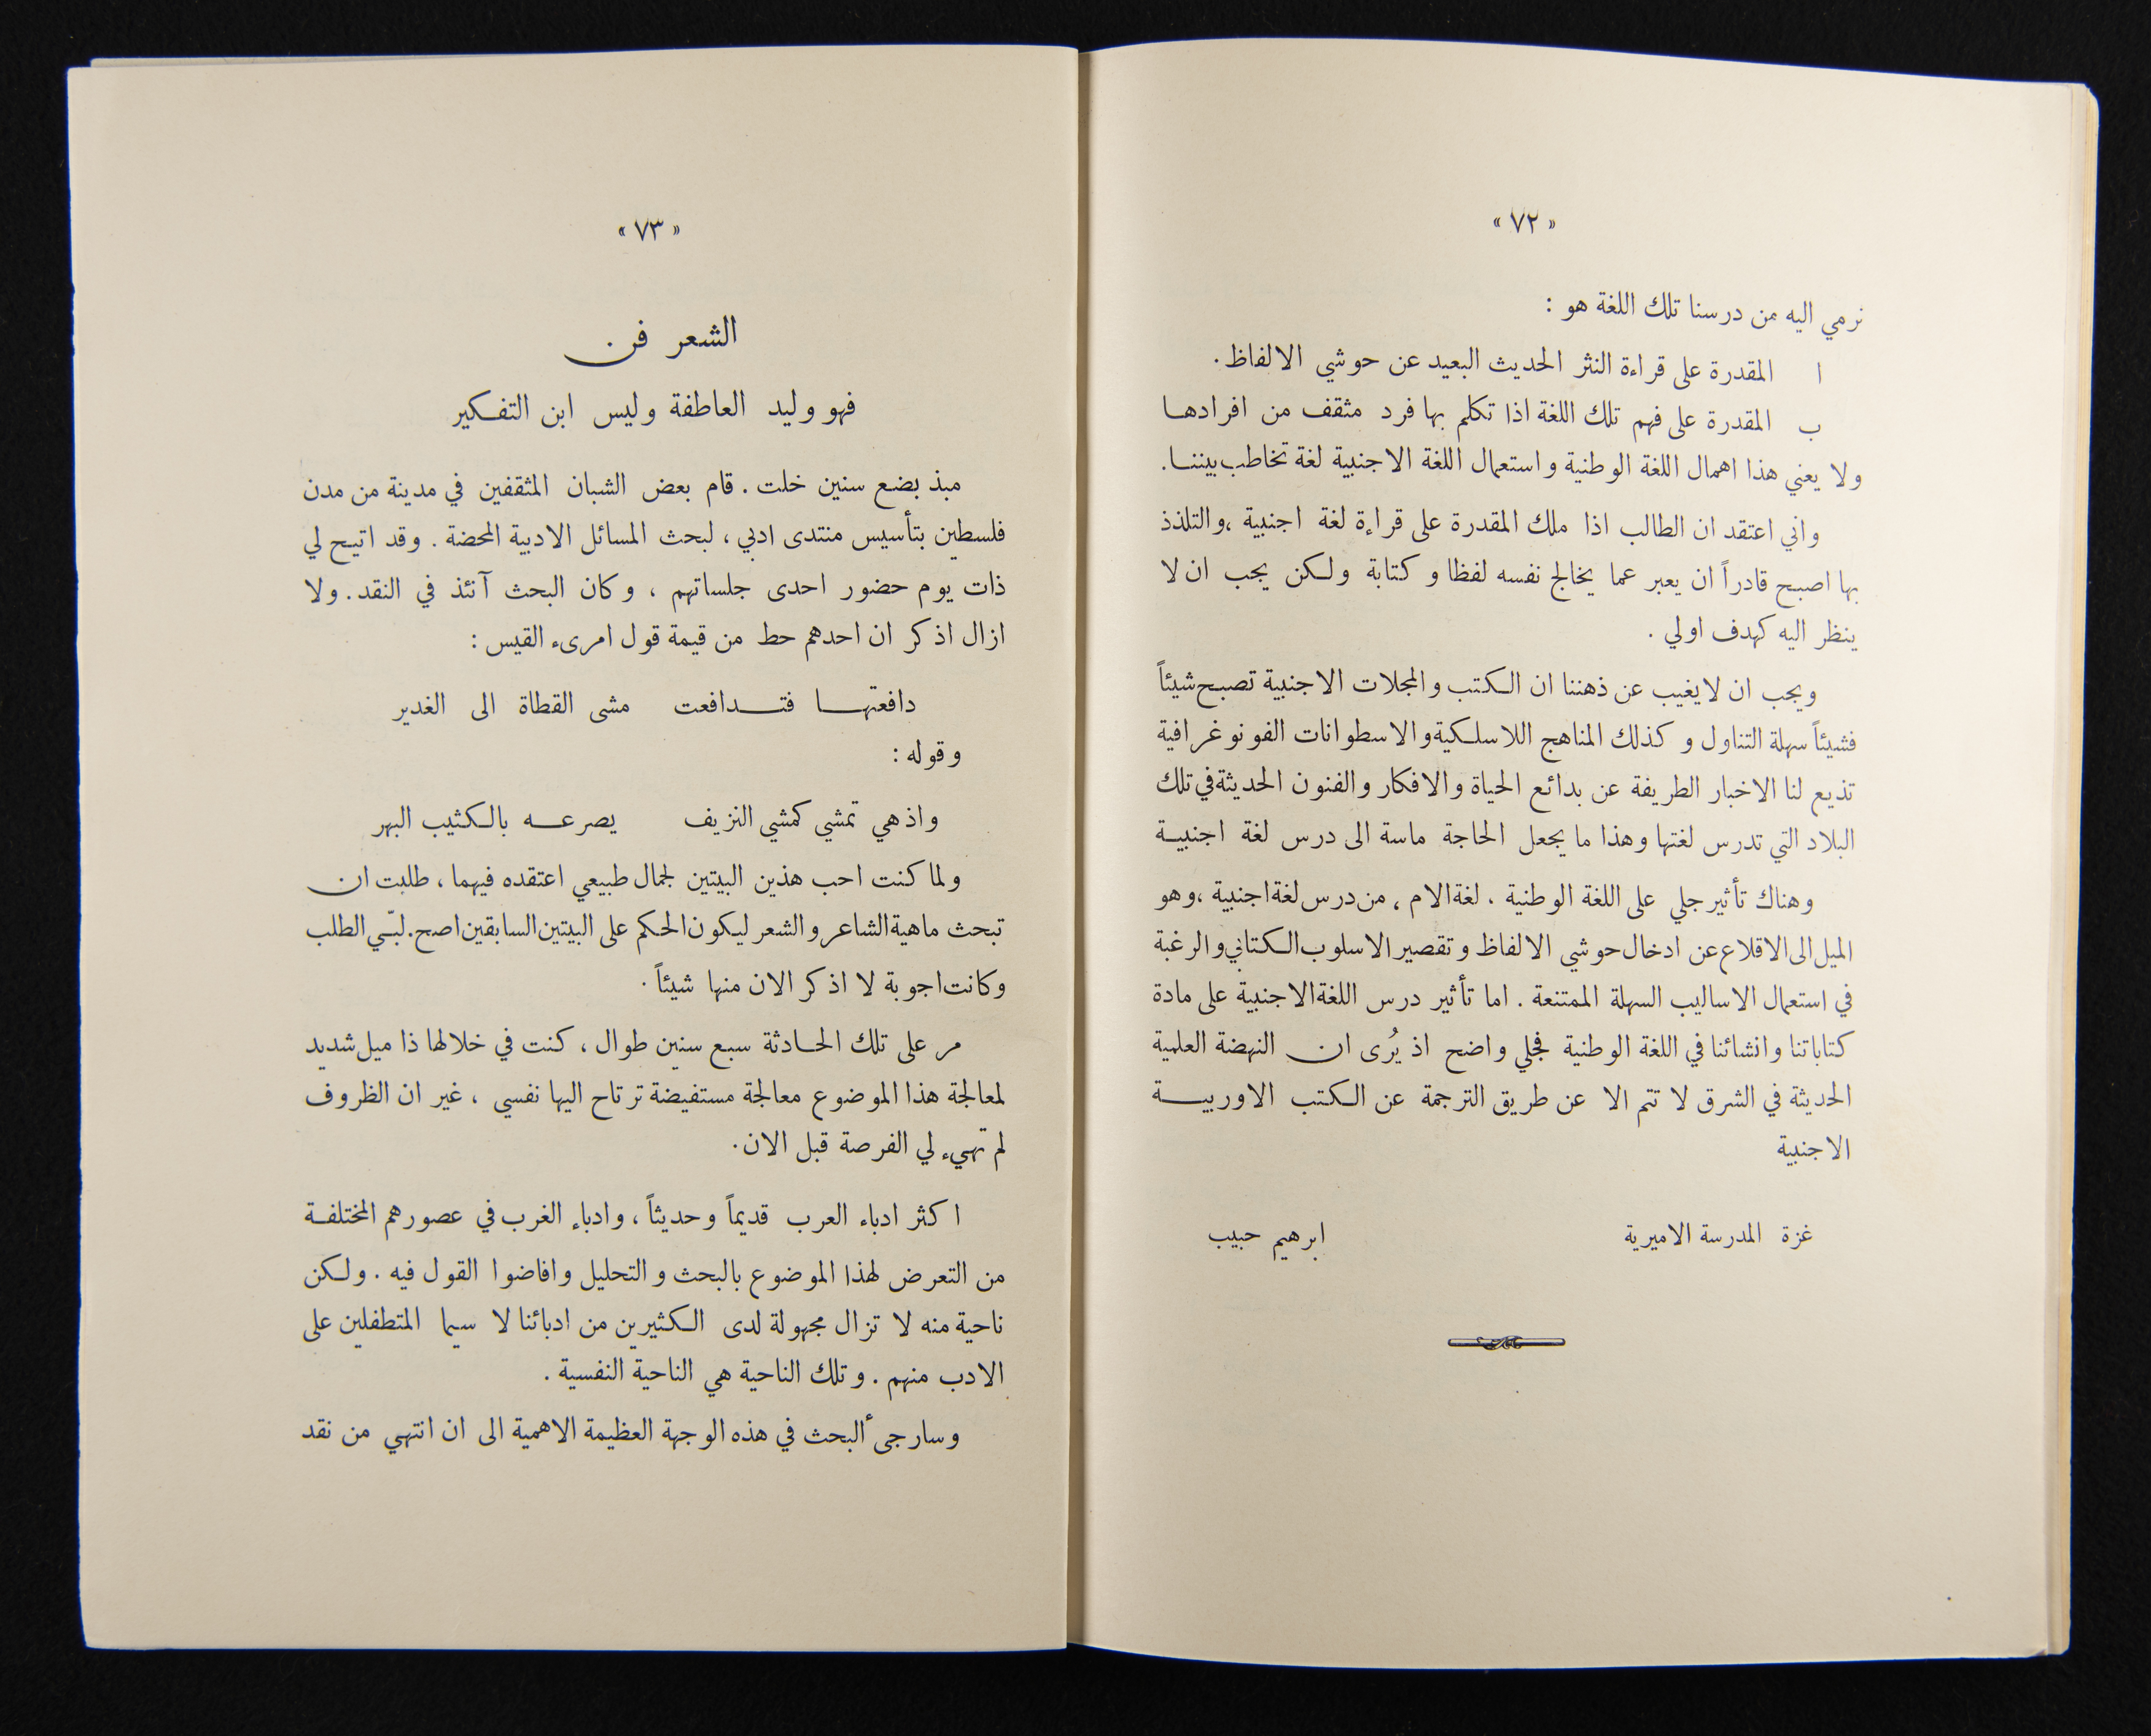 « ٧٢ »
نرمي اليه من درسنا تلك اللغة هو :
ا المقدرة على قراءة النثر الحديث البعيد عن حوشي الالفاظ .
ب المقدرة على فهم تلك اللغة اذا تكلم بها فرد مثقف من افرادها
ولا يعني هذا اهمال اللغة الوطنية واستعمال اللغة الاجنبية لغة تخاطب بيننا .
واني اعتقد ان الطالب اذا ملك المقدرة على قراءة لغة اجنبية ، والتلذذ
بها اصبح قادراً ان يعبر عما يخالج نفسه لفظا وكتابة ولكن يجب ان لا
ينظر اليه كهدف اولي .
ويجب ان لا يغيب عن ذهننا ان الكتب والمجلات الاجنبية تصبح شيئاً
فشيئاً سهلة التناول وكذلك المناهج اللاسلكية والاسطوانات الفونوغرافية
تذيع لنا الاخبار الطريفة عن بدائع الحياة والافكار والفنون الحديثة في تلك
البلاد التي تدرس لغتها وهذا ما يجعل الحاجة ماسة الى درس لغة اجنبية
وهناك تأثير جلي على اللغة الوطنية ، لغة الام ، من درس لغة اجنبية ، وهو
الميل الى الاقلاع عن ادخال حوشي الالفاظ وتقصير الاسلوب الكتابي والرغبة
في استعمال الاساليب السهلة الممتنعة . اما تأثير درس اللغة الاجنبية على مادة
كتاباتنا وانشائنا في اللغة الوطنية فجلي واضح اذ يُرى ان النهضة العلمية
الحديثة في الشرق لا تتم الا عن طريق الترجمة عن الكتب الاوربية
الاجنبية
غزة المدرسة الاميرية ابرهيم حبيب
« ٧٣ »
الشعر فن
فهو وليد العاطفة وليس ابن التفكير
مبذ بضع سنين خلت . قام بعض الشبان المثقفين في مدينة من مدن
فلسطين بتأسيس منتدى ادبي ، لبحث المسائل الادبية المحضة . وقد اتيح لي
ذات يوم حضور احدى جلساتهم ، وكان البحث آنئذ في النقد . ولا
ازال اذكر ان احدهم حط من قيمة قول امرىء القيس :
دافعتها فتدافعت مشى القطاة الى الغدير
وقوله :
واذ هي تمشي كمشي النزيف يصرعه بالكثيب البهر
ولما كنت احب هذين البيتين لجمال طبيعي اعتقده فيهما ، طلبت ان
تبحث ماهية الشاعر والشعر ليكون الحكم على البيتين السابقين اصح . لبّي الطلب
وكانت اجوبة لا اذكر الان منها شيئاً .
مر على تلك الحادثة سبع سنين طوال ، كنت في خلالها ذا ميل شديد
لمعالجة هذا الموضوع معالجة مستفيضة ترتاح اليها نفسي ، غير ان الظروف
لم تهيء لي الفرصة قبل الان .
اكثر ادباء العرب قديماً وحديثاً ، وادباء الغرب في عصورهم المختلفة
من التعرض لهذا الموضوع بالبحث والتحليل وافاضوا القول فيه . ولكن
ناحية منه لا تزال مجهولة لدى الكثيرين من ادبائنا لا سيما المتطفلين على
الادب منهم . وتلك الناحية هي الناحية النفسية .
وسارجى ألبحث في هذه الوجهة العظيمة الاهمية الى ان انتهي من نقد